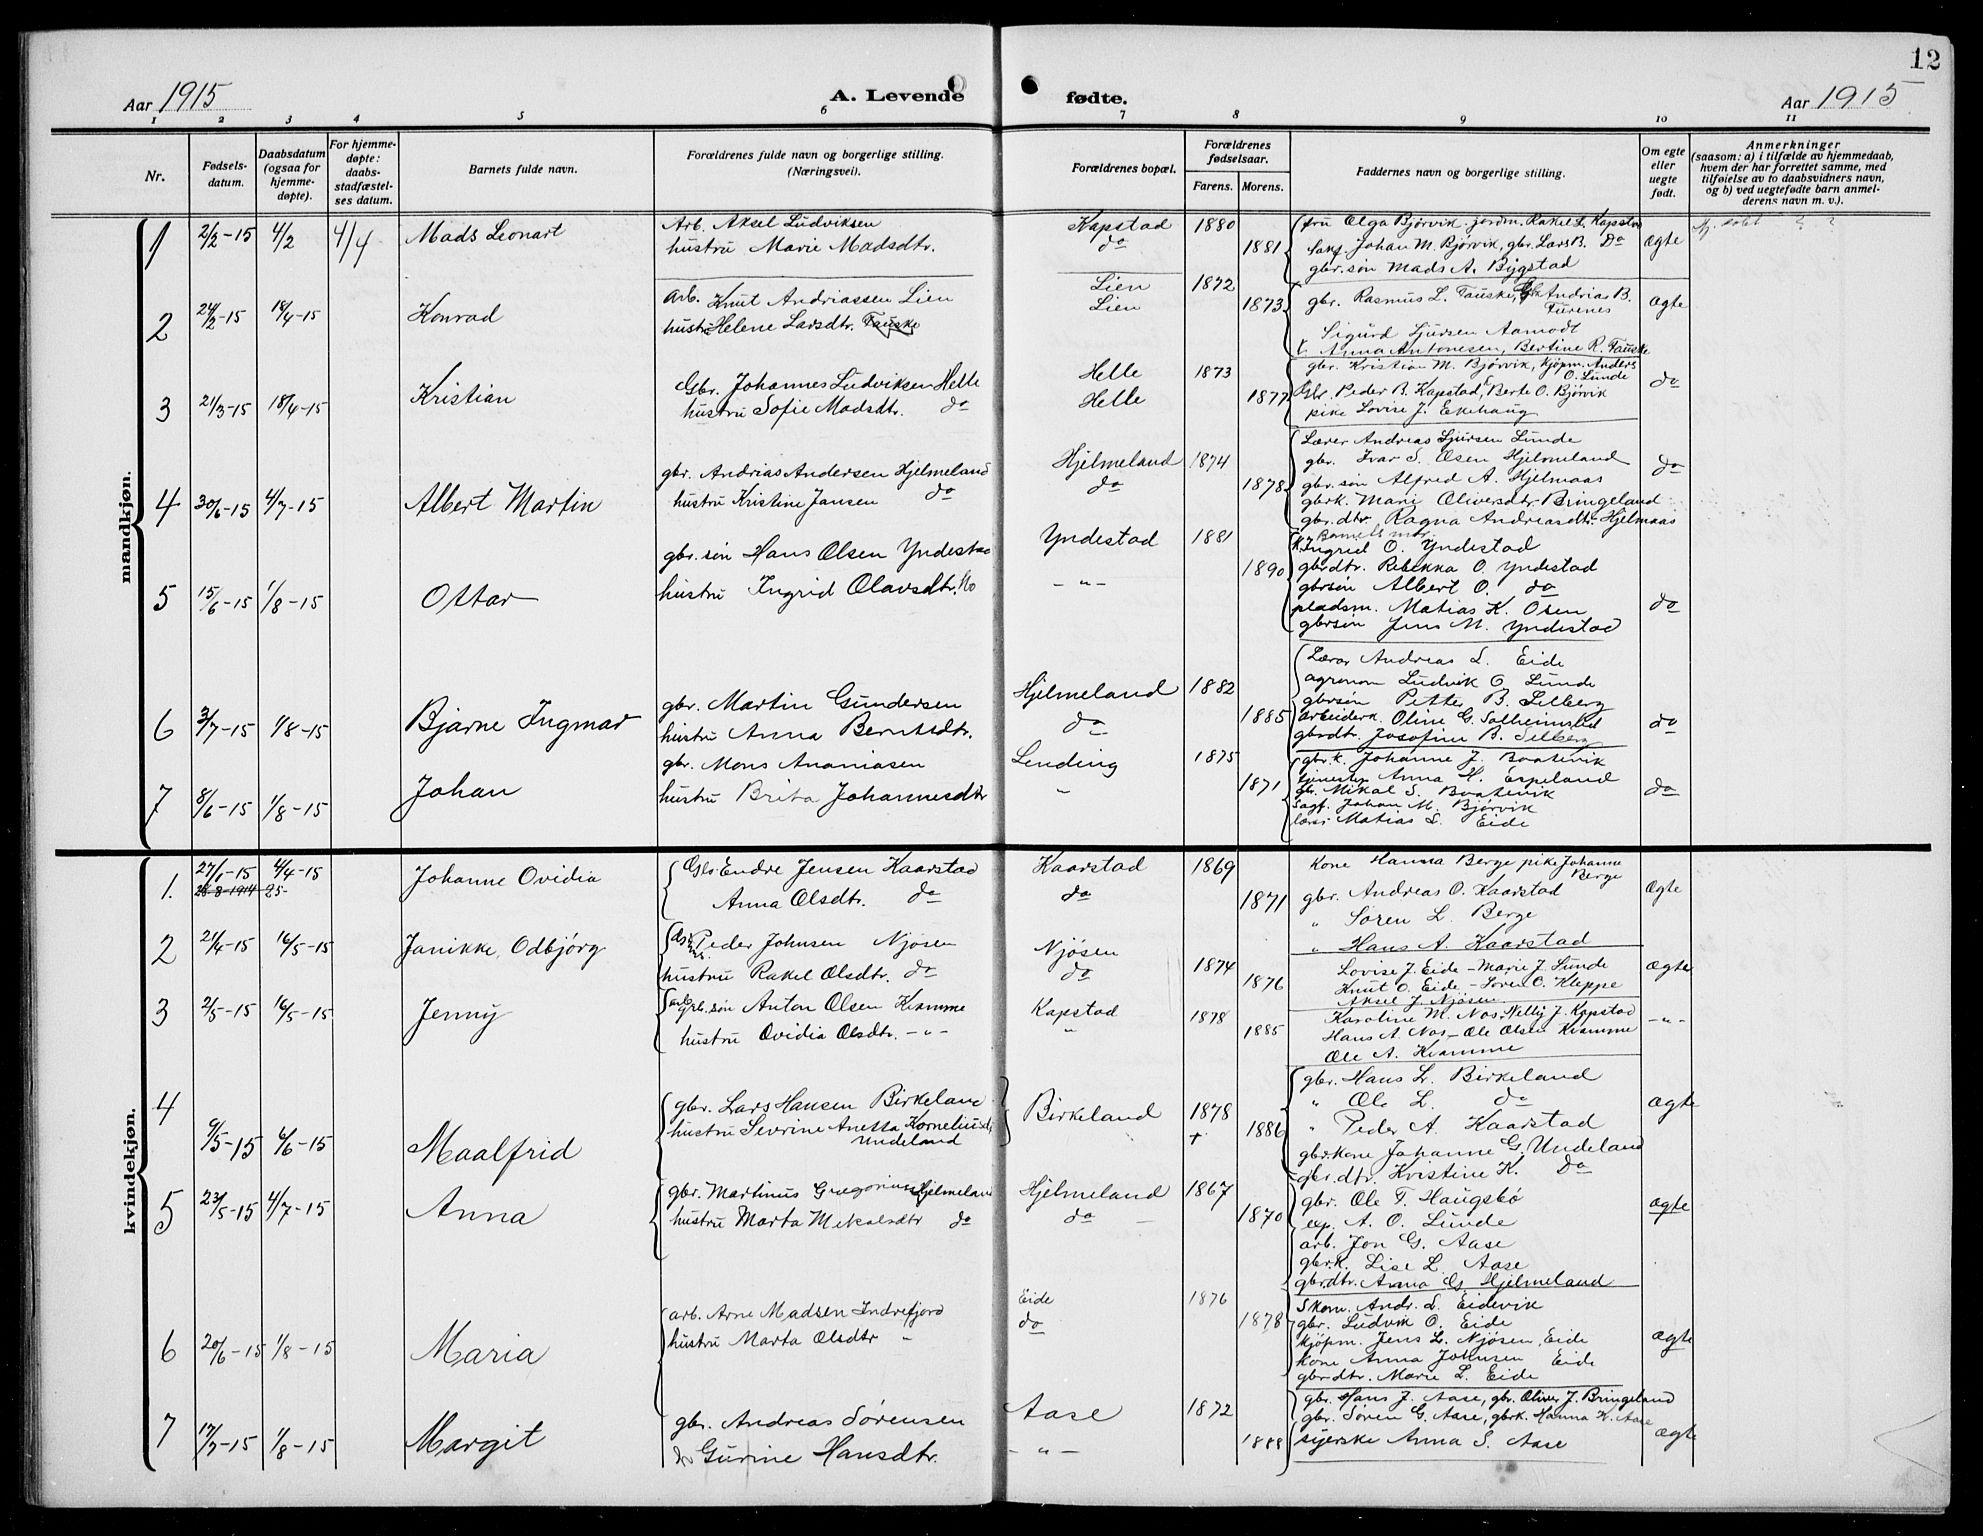 12
Aar 1915
A. Levende
fødte.
Aar 1915
1 2 3 4 5 6 7 8 9 10 11
Nr.
Fødsels-
datum.
Daabsdatum
(ogsaa for
hjemme-
døpte).
For hjemme-
døpte:
daabs-
stadfæstel-
ses datum.
Barnets fulde navn.
Forældrenes fulde navn og borgerlige stilling.
(Næringsvei).
Forældrenes bopæl.
Forældrenes
fødselsaar.
Farens. Morens.
Faddernes navn og borgerlige stilling.
Om egte
eller
uegte
født.
Anmerkninger
(saasom: a) i tilfælde av hjemmedaab,
hvem der har forrettet samme, med
tilføielse av to daabsvidners navn,
og b) ved uegtefødte barn anmel-
derens navn m. v.).
mandkjøn.
1 2/2-15 4/2 4/4 Mads Leonart
Arb. Aksel Ludviksen
hustru Marie Madsdtr.
Kapstad
do
1880
1881
fru Olga Bjørvik. jordm. Rakel L. Kapstad
Sakf. Johan M. Bjørvik, gbr. Lars B. Do
gbr. søn Mads A. Bygstad
Ægte
2 24/2-15 18/4-15 Konrad
Arb. Knut Andriassen Lien
hustru Helene Larsdtr. Fauske
Lien
Lien
1872
1873
gbr. Rasmus L. Fauske, Andrias B.
Furenes
Sigurd Sjursen Aamodt
Anna Antonesen, Bertine R. Fauske
Ægte
3 21/3-15 18/4-15 Kristian
Gbr. Johannes Ludviksen Helle
hustru Sofie Madsdtr. do
Helle
Helle
1873
1877
gbr. Kristian M. Bjørvik, kjøpm. Anders
O. Lunde
Gbr. Peder B. Kapstad, Berte O. Bjørvik
pike Lovise J. Ekehaug
do
4 30/6-15 4/7-15 Albert Martin
gbr. Andrias Andersen Hjelmeland
hustru Kristine Jansen do
Hjelmeland
do
1874
1878
Lærer Andreas Sjursen Lunde
gbr. Ivar S. Osen Hjelmeland
gbr. søn Alfred A. Hjelmaas
gbrk. Mari Oliversdtr. Bringeland
gbr. dtr. Ragna Andreasdtr. Hjelmaas
do
5 15/6-15 1/8-15 Ottar
gbr. søn Hans Olsen Yndestad
hustru Ingrid Olavsdtr. do
Yndestad
- " -
1881
1890
Barnets mor
K. Ingrid O. Yndestad
gbrdtr. Rebekka O. Yndestad
gbrsøn Albert O. do
pladsm. Matias K. Osen
gbrsøn Jens M. Yndestad
do
6 3/7-15 1/8-15 Bjarne Ingmar
gbr. Martin Gundersen
hustru Anna Berntsdtr.
Hjelmeland
do
1882
1885
Lærer Andreas L. Eide
agronom Ludvik O. Lunde
gbrsøn Petter B. Selberg
arbeiderk. Oline G. Solheimslid
gbrdtr. Josofine B. Selberg
do
7 8/6-15 1/8-15 Johan
gbr. Mons Ananiasen
hustru Brita Johannesdtr
Lending
"
1875
1871
gbr. k. Johanne J. Baatevik
tjenestep. Anna H. Espeland
gbr. Mikal S. Baatevik
Sagf. Johan M. Bjørvik
lærer Matias L. Eide
do
kvindekjøn.
1. 27/1-15 4/4-15 Johanne Ovidia
28-8-1914
Gbr. Endre Jensen Kaarstad
Anna Olsdtr. do
Kaarstad
do
1869
1871
Kone Hanna Berge pike Johanne
Berge
gbr. Andreas O. Kaarstad
" Søren L. Berge
" Hans A. Kaarstad
Ægte
2 21/4-15 16/5-15 Janikke, Odbjørg
Peder Johnsen Njøsen
hustru Rakel Olsdtr. do
Njøsen
do
1874
1876
Lovise J. Eide - Marie J. Lunde
Knut O. Eide - Søren O. Kleppe
Aksel J. Njøsen
Ægte
3 2/5-15 16/5-15 Jenny
Gbr. søn Anton Olsen Kvamme
hustru Ovidia Olsdtr. - " -
Kapstad
"
1878
1885
Karoline M. Nos, Nelly J. Kapstad
Hans A. Nos - Ole Olsen Kvamme
Ole A. Kvamme
- " -
4 9/5-15 6/6-15 Maalfrid
gbr. Lars Hansen Birkeland
hustru Sevrine Anetta Korneliusdtr
Undeland
Birkeland
1878
+
1886
gbr. Hans L. Birkeland
" Ole L. do
" Peder A. Kaarstad
gbr. kone Johanne G. Undeland
gbr. dtr. Kristine K. Do
Ægte
5 23/5-15 4/7-15 Anna
gbr. Martinus Gregoriusen Hjelmeland
hustru Marta Mikalsdtr do
Hjelmeland
do
1867
1870
gbr. Ole T. Haugsbø
exp. A. O. Lunde
arb. Jon G. Aase
gbrk. Lise L. Aase
gbrdtr. Anna G. Hjelmeland
ægte
6 20/6-15 1/8-15 Maria
arb. Arne Madsen Indrefjord
hustru Marta Olsdtr "
Eide
do
1876
1878
Skom. Andr. L. Eidevik
gbr. Ludvik O. Eide
kjøpm. Jens L. Njøsen, Eide
kone Anna Johnsen Eide
gbrdtr. Marie L. Eide
Ægte
7 17/7-15 1/8-15 Margit
gbr. Andreas Sørensen
Gurine Hansdtr.
Aase
- " -
1872
1888
gbr. Hans J. Aase, gbr. Oliver J. Bringeland
gbr. Søren G. Aase, gbrk. Hanna K. Aase
syerske Anna S. Aase
Ægte